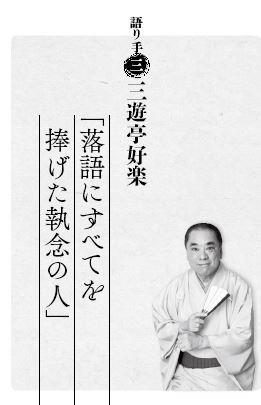 語り手 三 三遊亭好楽
「落語にすべてを
捧げた執念の人」